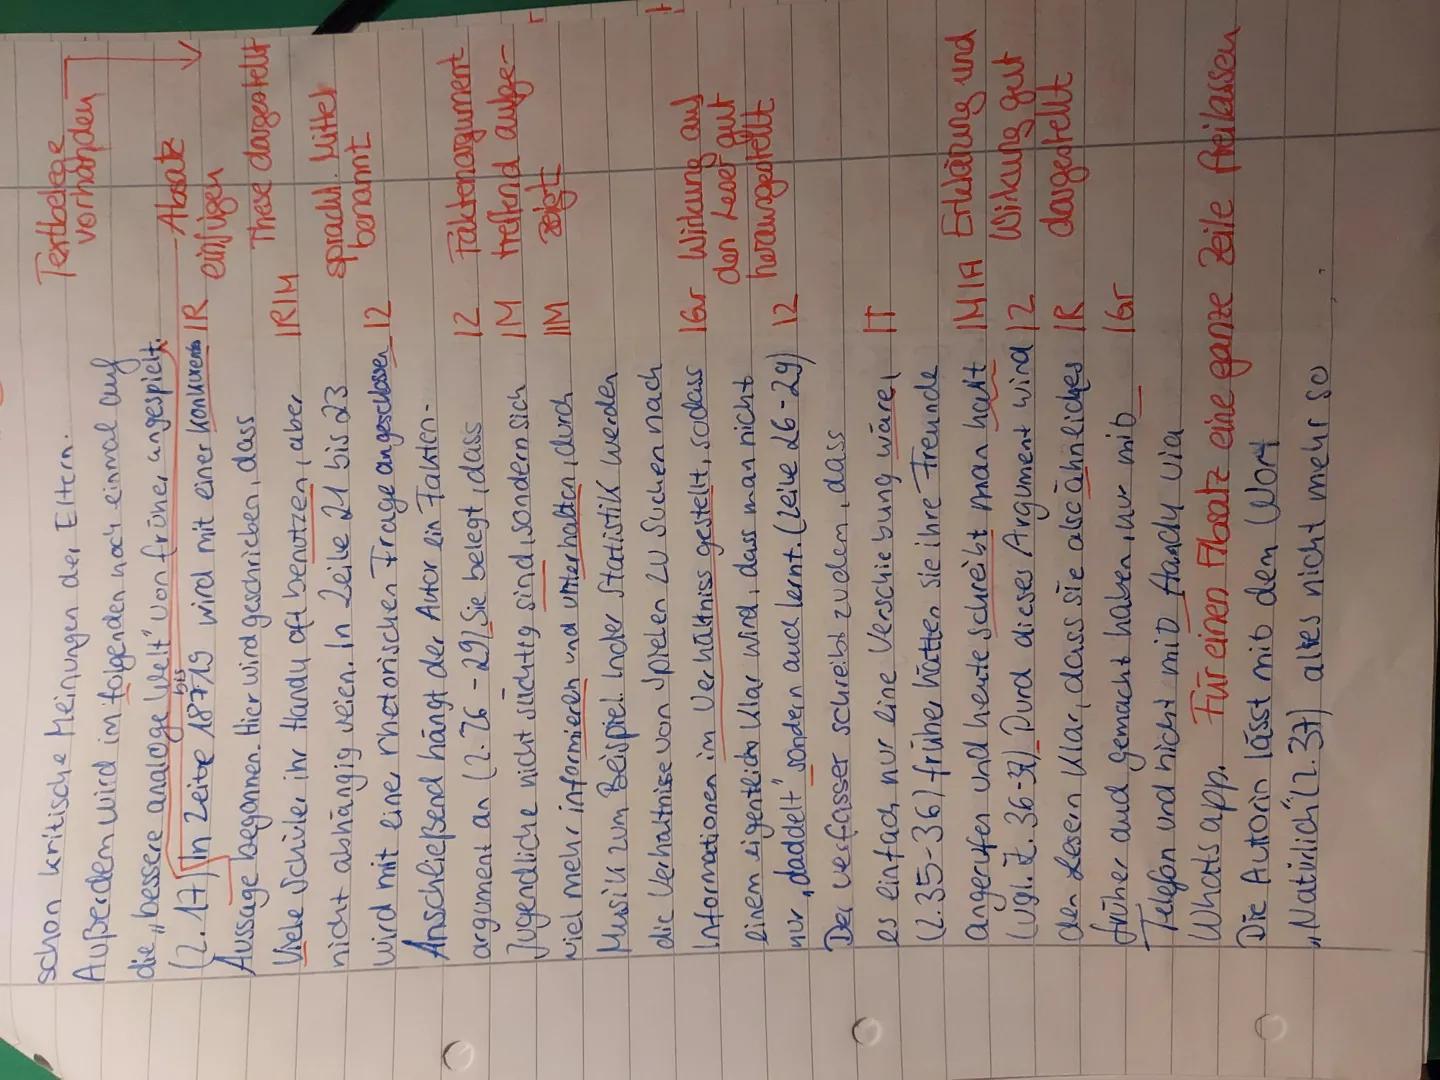 schon kritische Meinungen der Eltern. Textbelege vorhanden
Außerdem wird im folgenden noch einmal auf
die „bessere analoge Welt" von früher, angespielt. - Absatz
(Z. 17) In Zeile 18 bis 19 wird mit einer IR einfügen
Aussage begonnen. Hier wird geschrieben, dass These dargestellt
Viele Schüler ihr Handy oft benutzen, aber IRIM
nicht abhängig seien. In Zeile 21 bis 23 sprachl. Mittel
wird mit einer rhetorischen Frage angeschlossen IZ benannt
Anschließend hängt der Autor ein Fakten-
argument an (Z. 26 - 29) Sie belegt, dass IZ Faktenargument
Jugendliche nicht süchtig sind, sondern sich IM treffend aufge-
viel mehr informieren und unterhalten, durch IIM zeigt
Musik zum Beispiel. In der Statistik werden
die Verhältnise von Spielen zu Suchen nach
Informationen im Verhältniss gestellt, sodass IGr Wirkung auf
einem eigentlich klar wird, dass man nicht den Leser gut
nur „daddelt" sondern auch lernt. (Zeile 26-29) IZ herausgestellt
Der Verfasser schreibt zudem, dass
es einfach nur eine Verschiebung wäre, IT
(Z. 35-36) früher hätten sie ihre Freunde
angerufen und heute schreibt man halt IMIA Erklärung und
(vgl. Z. 36-37) Durch dieses Argument wird IZ Wirkung gut
den Lesern klar, dass sie also ähnliches IR dargestellt
früher auch gemacht haben, nur mit IGr
Telefon und nicht mit Handy via
Whats app. Für einen Absatz eine ganze Zeile freilassen
Die Autorin lässt mit dem Wort
„Natürlich" (Z. 37) alles nicht mehr so